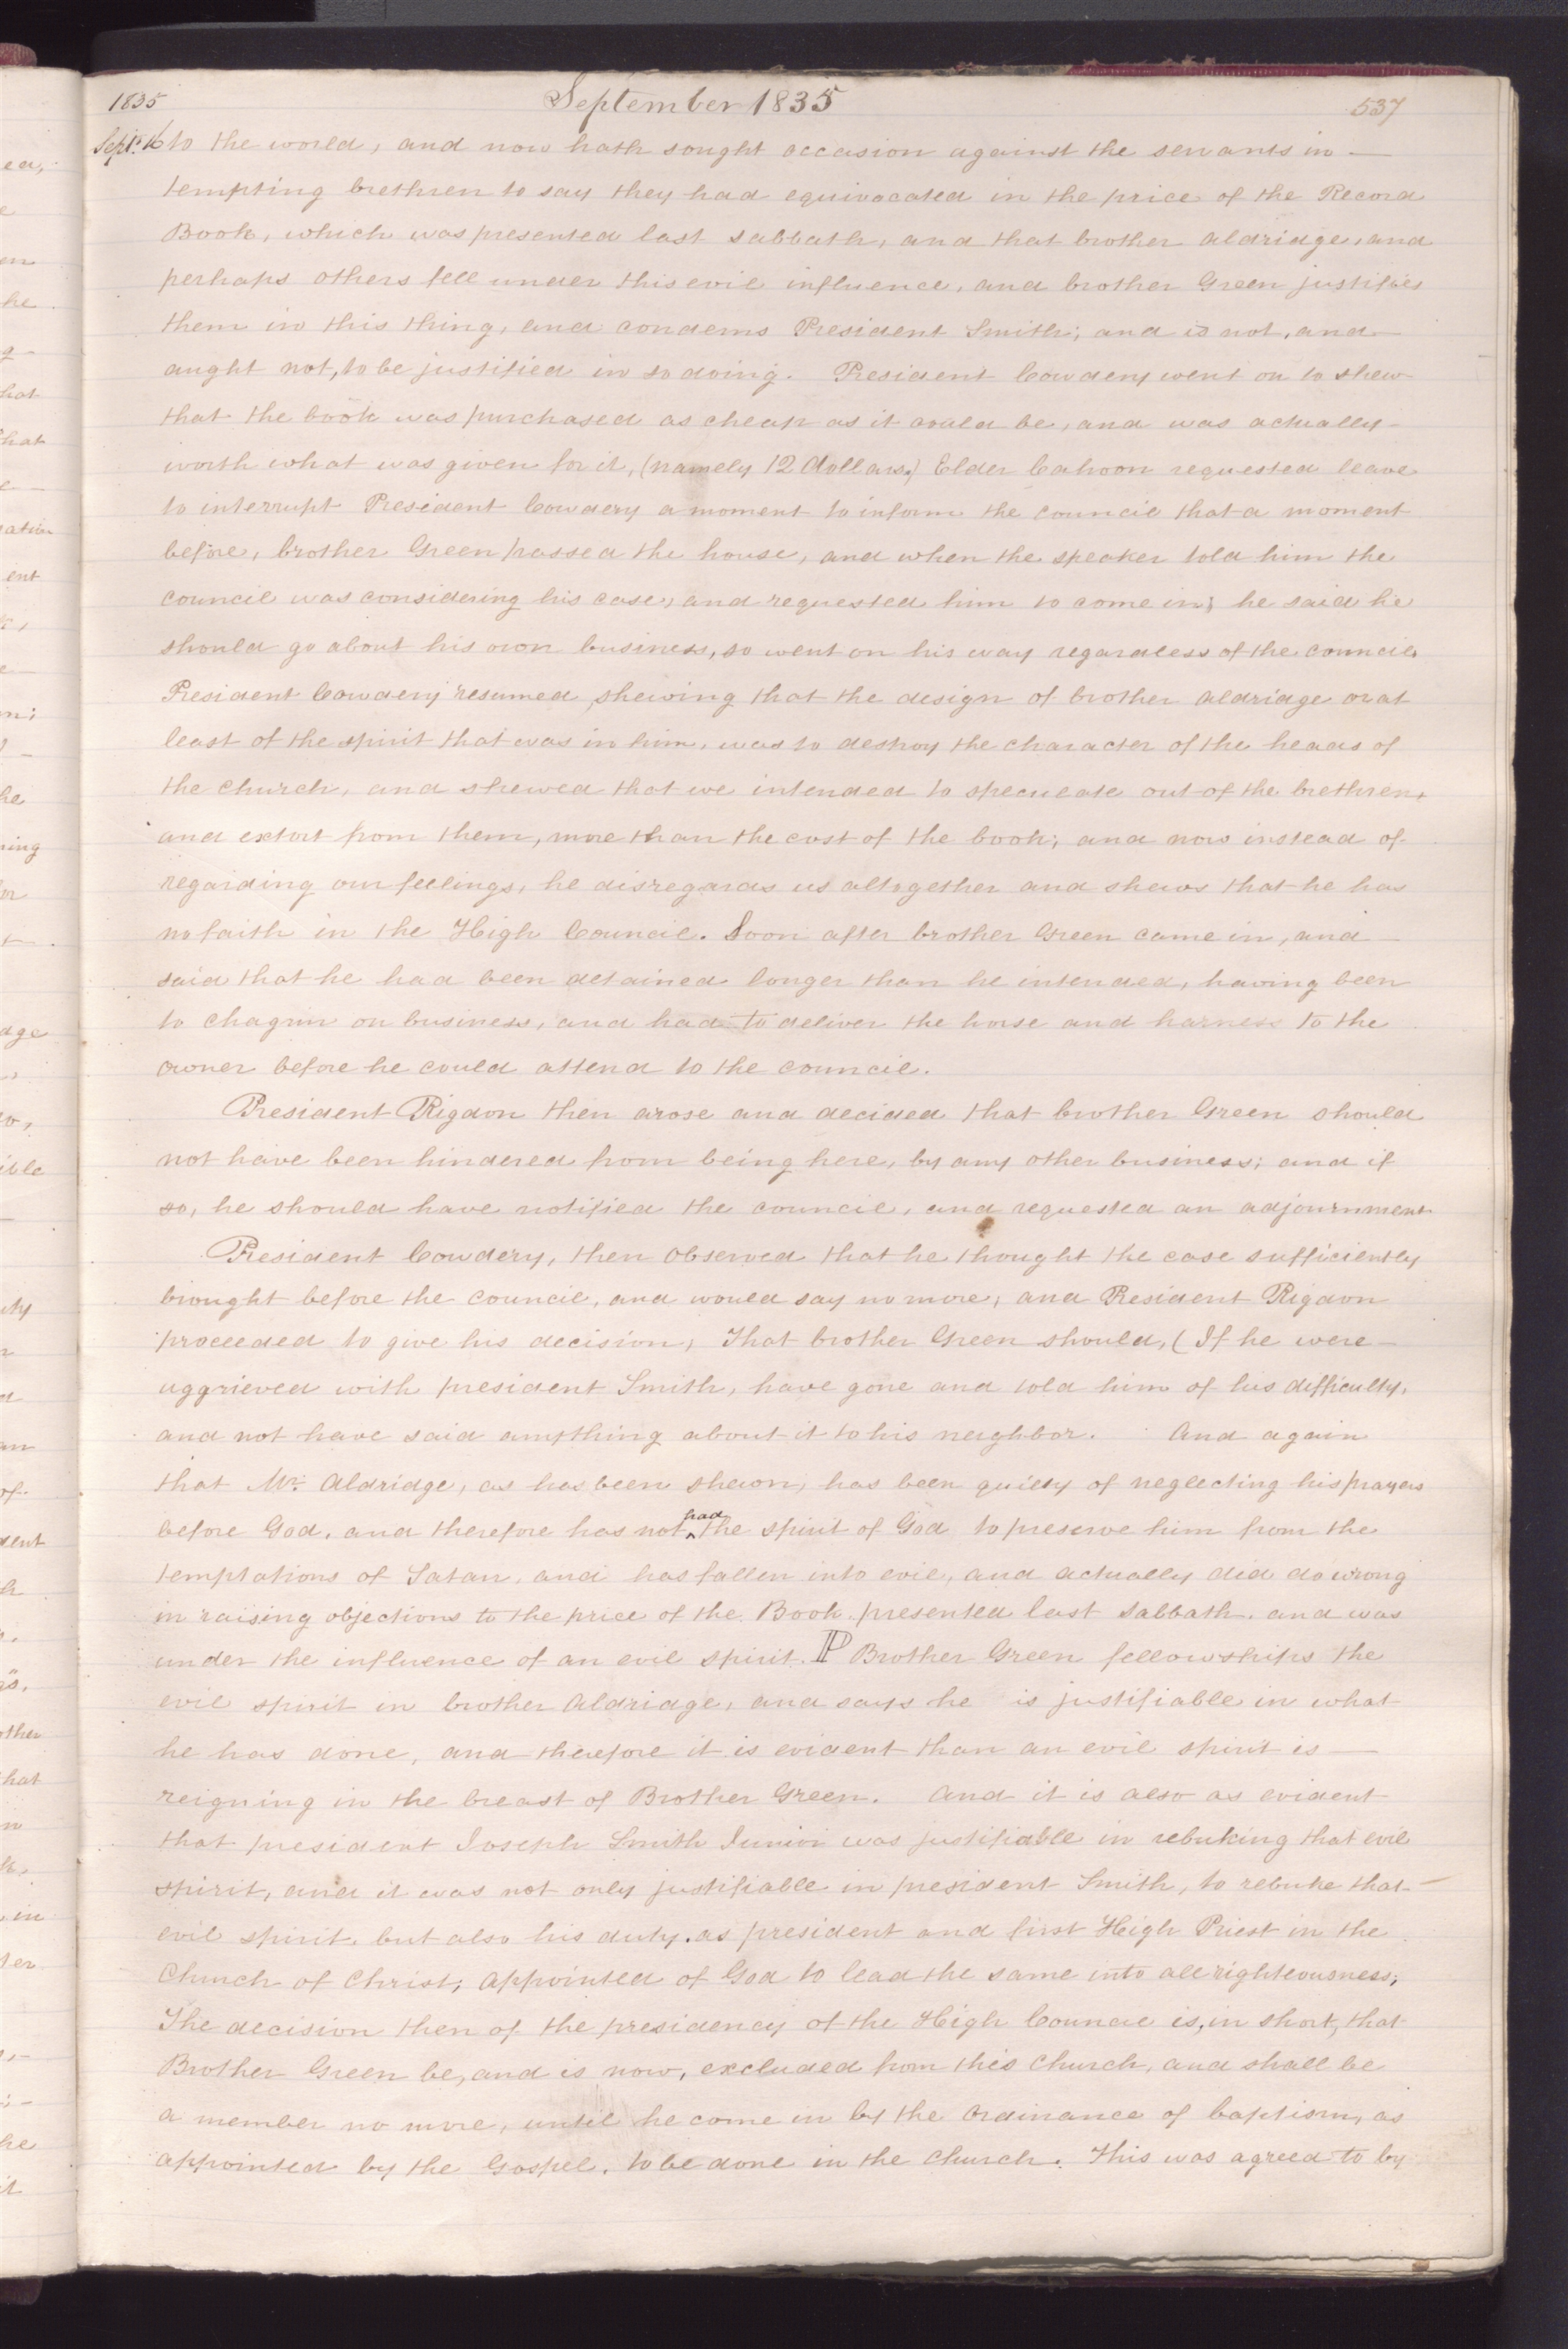 1835 September 1835 537
Sept. 16 to the world, and now hath sought occasion against the servants in —
tempting brethren to say they had equivocated in the price of the Record
Book, which was presented last sabbath, and that brother Aldridge, and
perhaps others fell under this evil influence, and brother Green justifies
them in this thing, and condems President Smith; and is not, and
aught not, to be justified in so doing. President Cowdery went on to shew
that the book was purchased as cheap as it could be, and was actually
worth what was given for it, (namely 12 dollars.) Elder Cahoon requested leave
to interrupt President Cowdery a moment to inform the council that a moment
before, brother Green passed the house, and when the speaker told him the
council was considering his case, and requested him to come in; he said he
should go about his own business, so went on his way regardless of the council.
President Cowdery resumed, shewing that the design of brother Aldridge or at
least of the spirit that was in him, was to destroy the character of the heads of
the church, and shewed that we intended to speculate out of the brethren,
and extort from them, more than the cost of the book; and now instead of
regarding our feelings, he disregards us altogether and shews that he has
no faith in the High Council. Soon after brother Green came in, and —
said that he had been detained longer than he intended, having been
to Chagrin on business, and had to deliver the horse and harness to the
owner before he could attend to the council.
President Rigdon then arose and decided that brother Green should
not have been hindered from being here, by any other business; and if
so, he should have notified the council, and requested an adjournment
President Cowdery, then observed that he thought the case sufficiently
brought before the council, and would say no more, and President Rigdon
proceeded to give his decision; That brother Green should, (If he were —
aggrieved with president Smith, have gone and told him of his difficulty,
and not have said anything about it to his neighbor. And again
that Mr. Aldridge, as has been shewn, has been guilty of neglecting his prayers
before God, and therefore has not ^had the spirit of God to preserve him from the
temptations of Satan, and has fallen into evil, and actually did do wrong
in raising objections to the price of the Book presented last Sabbath, and was
under the influence of an evil spirit. P Brother Green fellowships the
evil spirit in brother Aldridge, and says he is justifiable in what
he has done, and therefore it is evident than an evil spirit is —
reigning in the breast of Brother Green. And it is also as evident
that president Joseph Smith Junior was justifiable in rebuking that evil
spirit, and it was not only justifiable in president Smith, to rebuke that
evil spirit, but also his duty, as president and first High Priest in the
Church of Christ; appointed of God to lead the same into all righteousness;
The decision then of the presidency of the High Council is, in short, that
Brother Green be, and is now, excluded from this Church, and shall be
a member no more, until he come in by the ordinance of baptism, as
appointed by the Gospel, to be done in the church. This was agreed to by